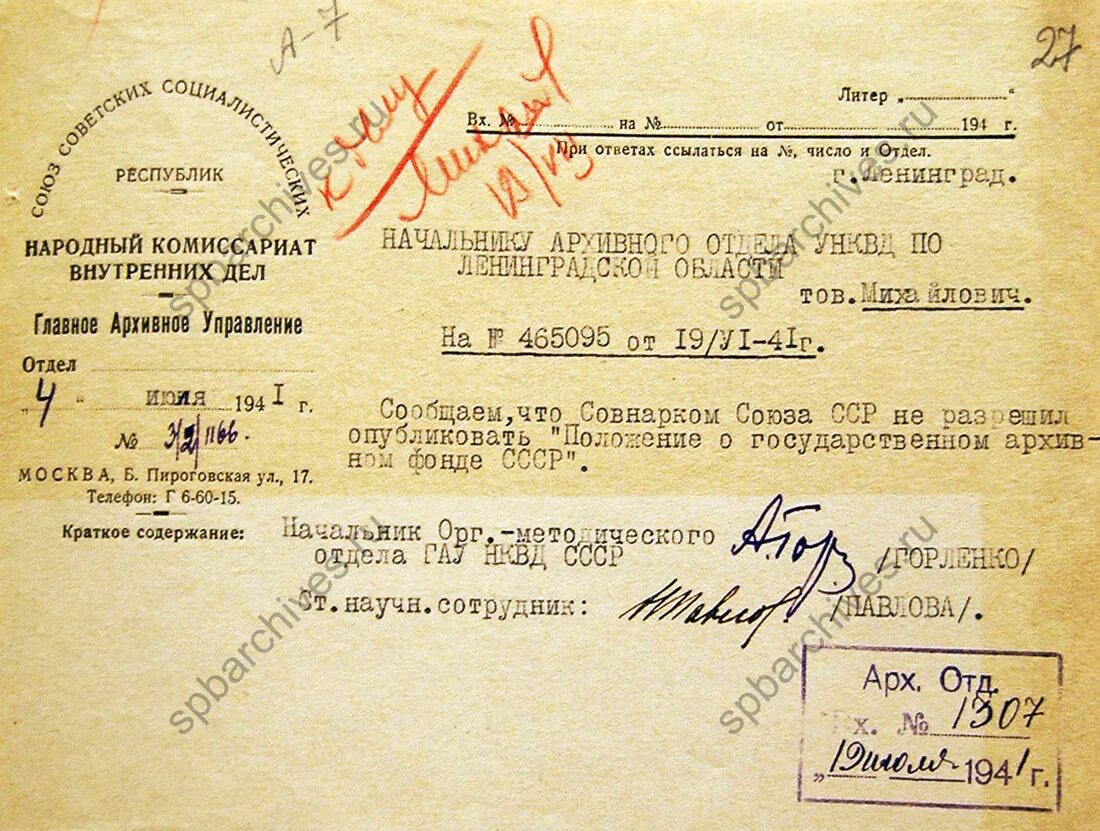 А-7
27
СОЮЗ СОВЕТСКИХ СОЦИАЛИСТИЧЕСКИХ
РЕСПУБЛИК
НАРОДНЫЙ КОМИССАРИАТ
ВНУТРЕННИХ ДЕЛ
Главное Архивное Управление
Отдел
„4" июля 1941 г.
№ 3/2/1166.
МОСКВА, Б. Пироговская ул., 17.
Телефон: Г 6-60-15.
Краткое содержание:
Литер „ "
Вх. № на № от 194 г.
При ответах ссылаться на №, число и Отдел.
г.Ленинград.
НАЧАЛЬНИКУ АРХИВНОГО ОТДЕЛА УНКВД ПО
ЛЕНИНГРАДСКОЙ ОБЛАСТИ
тов.Михайлович.
На № 465095 от 19/УІ-4Іг.
Сообщаем,что Совнарком Союза ССР не разрешил
опубликовать "Положение о государственном архив-
ном фонде СССР".
Начальник Орг.-методического
отдела ГАУ НКВД СССР
/ГОРЛЕНКО/
Ст.научн.сотрудник:
/ПАВЛОВА/.
Арх. Отд.
Вх. № 1307
„19 июля 1941 г.
spbarchives.ru
spbarchives.ru
spbarchives.ru
spbarchives.ru